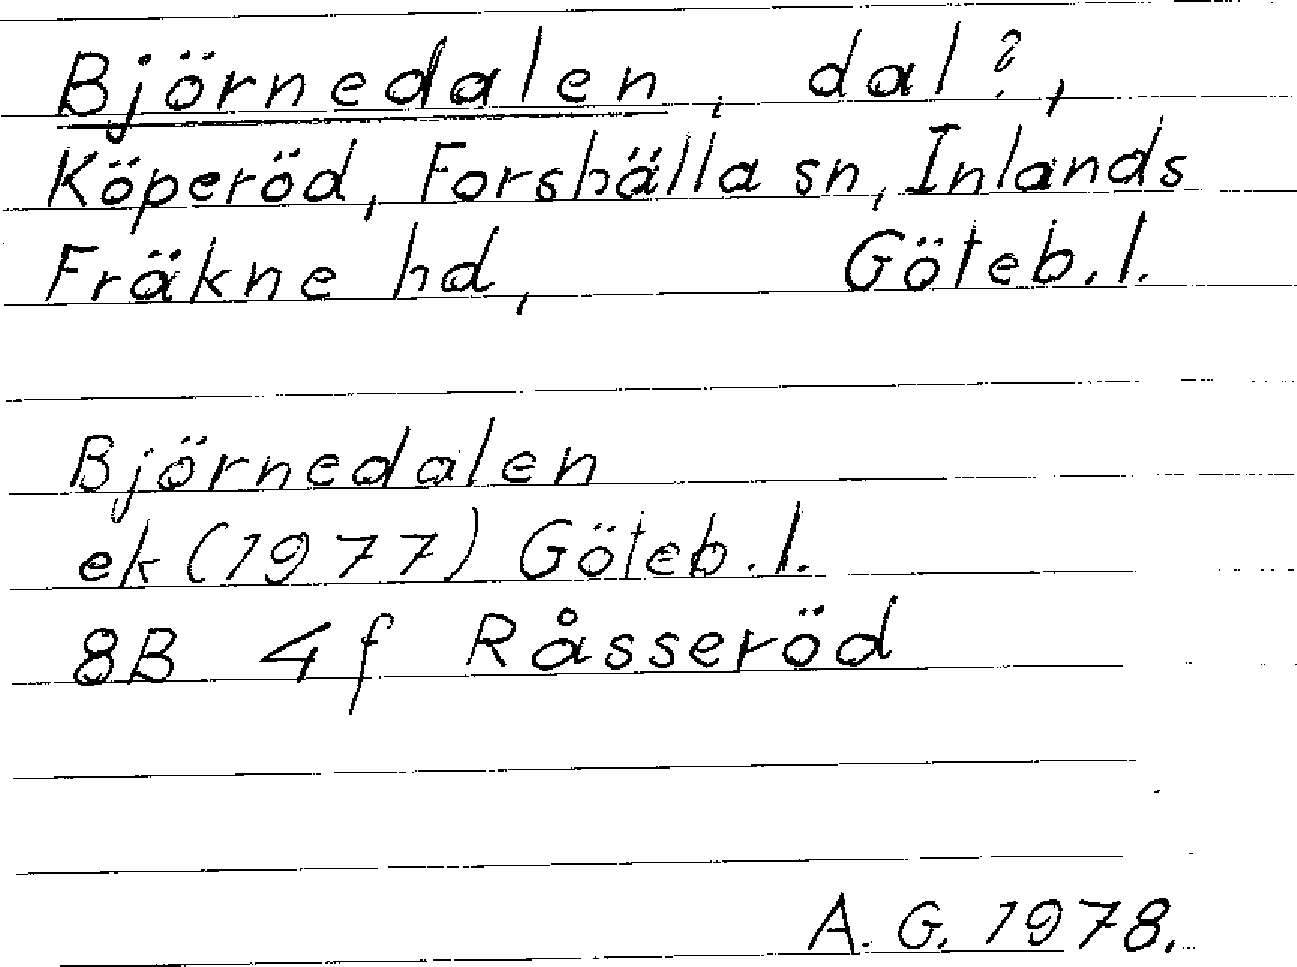 Björnedalen, dal?,
Köperöd, Forshälla sn, Inlands
Fräkne hd, Göteb. l.
Björnedalen
ek (1977) Göteb. l.
8B 4f Råsseröd
A. G. 1978.